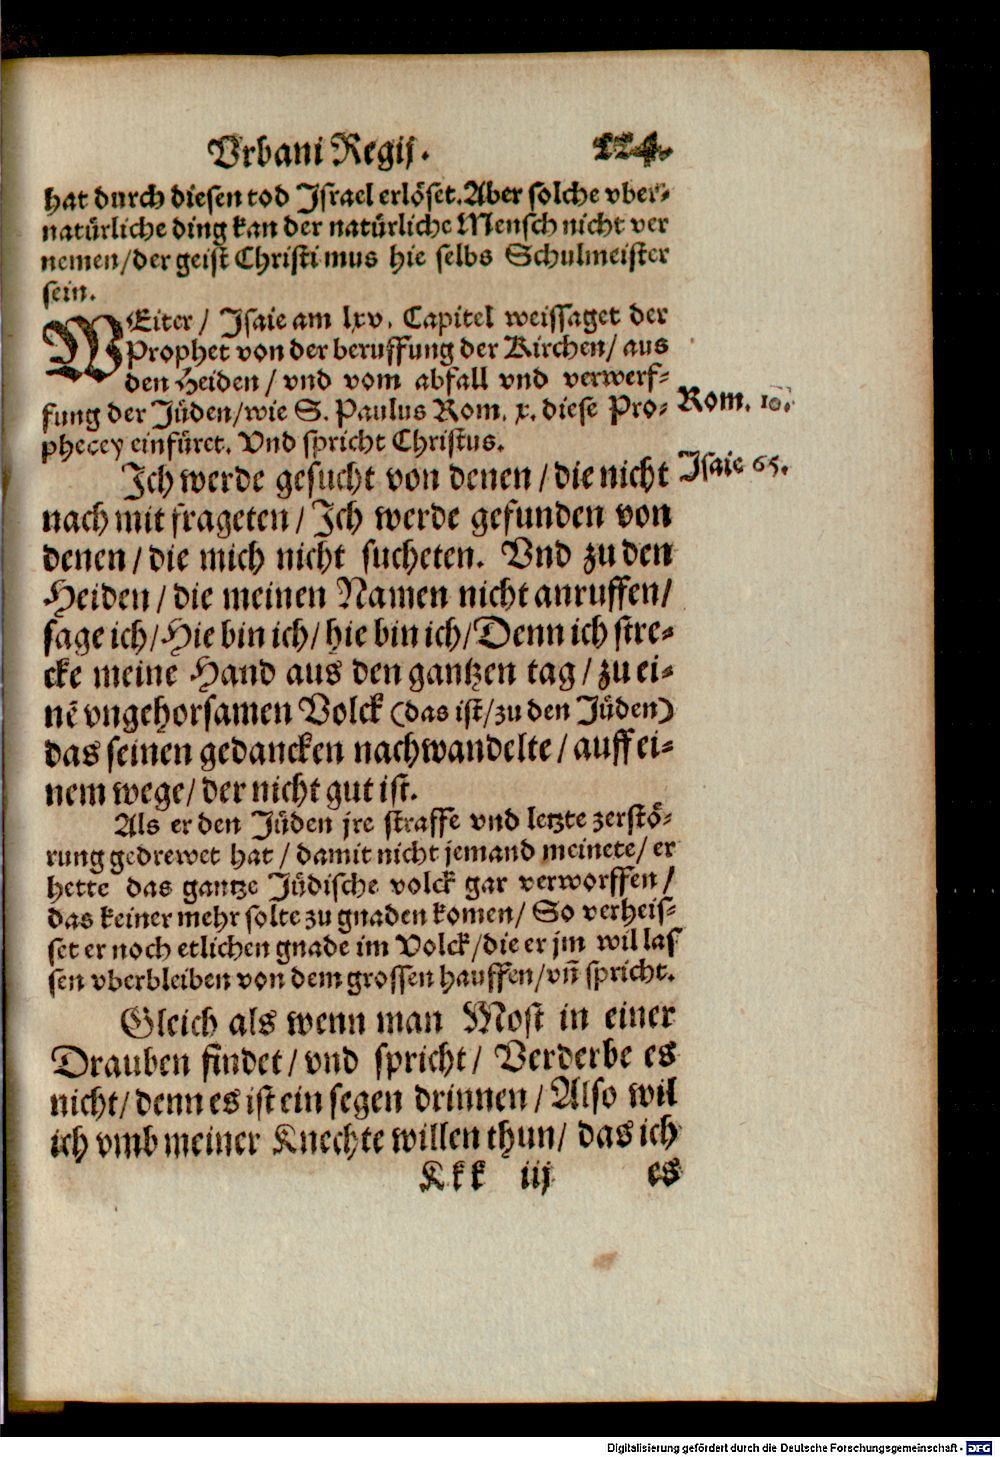 Vrbani Regij. 224.
hat durch diesen tod Israel erlöset. Aber solche vber-
natürliche ding kan der natürliche Mensch nicht ver
nemen/ der geist Christi mus hie selbs Schulmeister
sein.
WEiter/ Isaie am lxv. Capitel weissaget der
Prophet von der beruffung der Kirchen/ aus
den Heiden/ vnd vom abfall vnd verwerf-
fung der Jüden/ wie S. Paulus Rom. x. diese Pro-
phecey einfüret. Vnd spricht Christus.
Rom. 10.
Ich werde gesucht von denen/ die nicht
Isaie 65.
nach mir frageten/ Ich werde gefunden von
denen/ die mich nicht sucheten. Vnd zu den
Heiden/ die meinen Namen nicht anruffen/
sage ich/ Hie bin ich/ hie bin ich/ Denn ich stre-
cke meine Hand aus den gantzen tag/ zu ei-
nē vngehorsamen Volck (das ist/ zu den Jüden)
das seinen gedancken nachwandelte/ auff ei-
nem wege/ der nicht gut ist.
Als er den Jüden jre straffe vnd letzte zerstö-
rung gedrewet hat/ damit nicht jemand meinete/ er
hette das gantze Jüdische volck gar verworffen/
das keiner mehr solte zu gnaden komen/ So verheis-
set er noch etlichen gnade im Volck/ die er jm wil las
sen vberbleiben von dem grossen hauffen/ vn̄ spricht.
Gleich als wenn man Most in einer
Drauben findet/ vnd spricht/ Verderbe es
nicht/ denn es ist ein segen drinnen/ Also wil
ich vmb meiner Knechte willen thun/ das ich
Kkk iij es
Digitalisierung gefördert durch die Deutsche Forschungsgemeinschaft - DFG